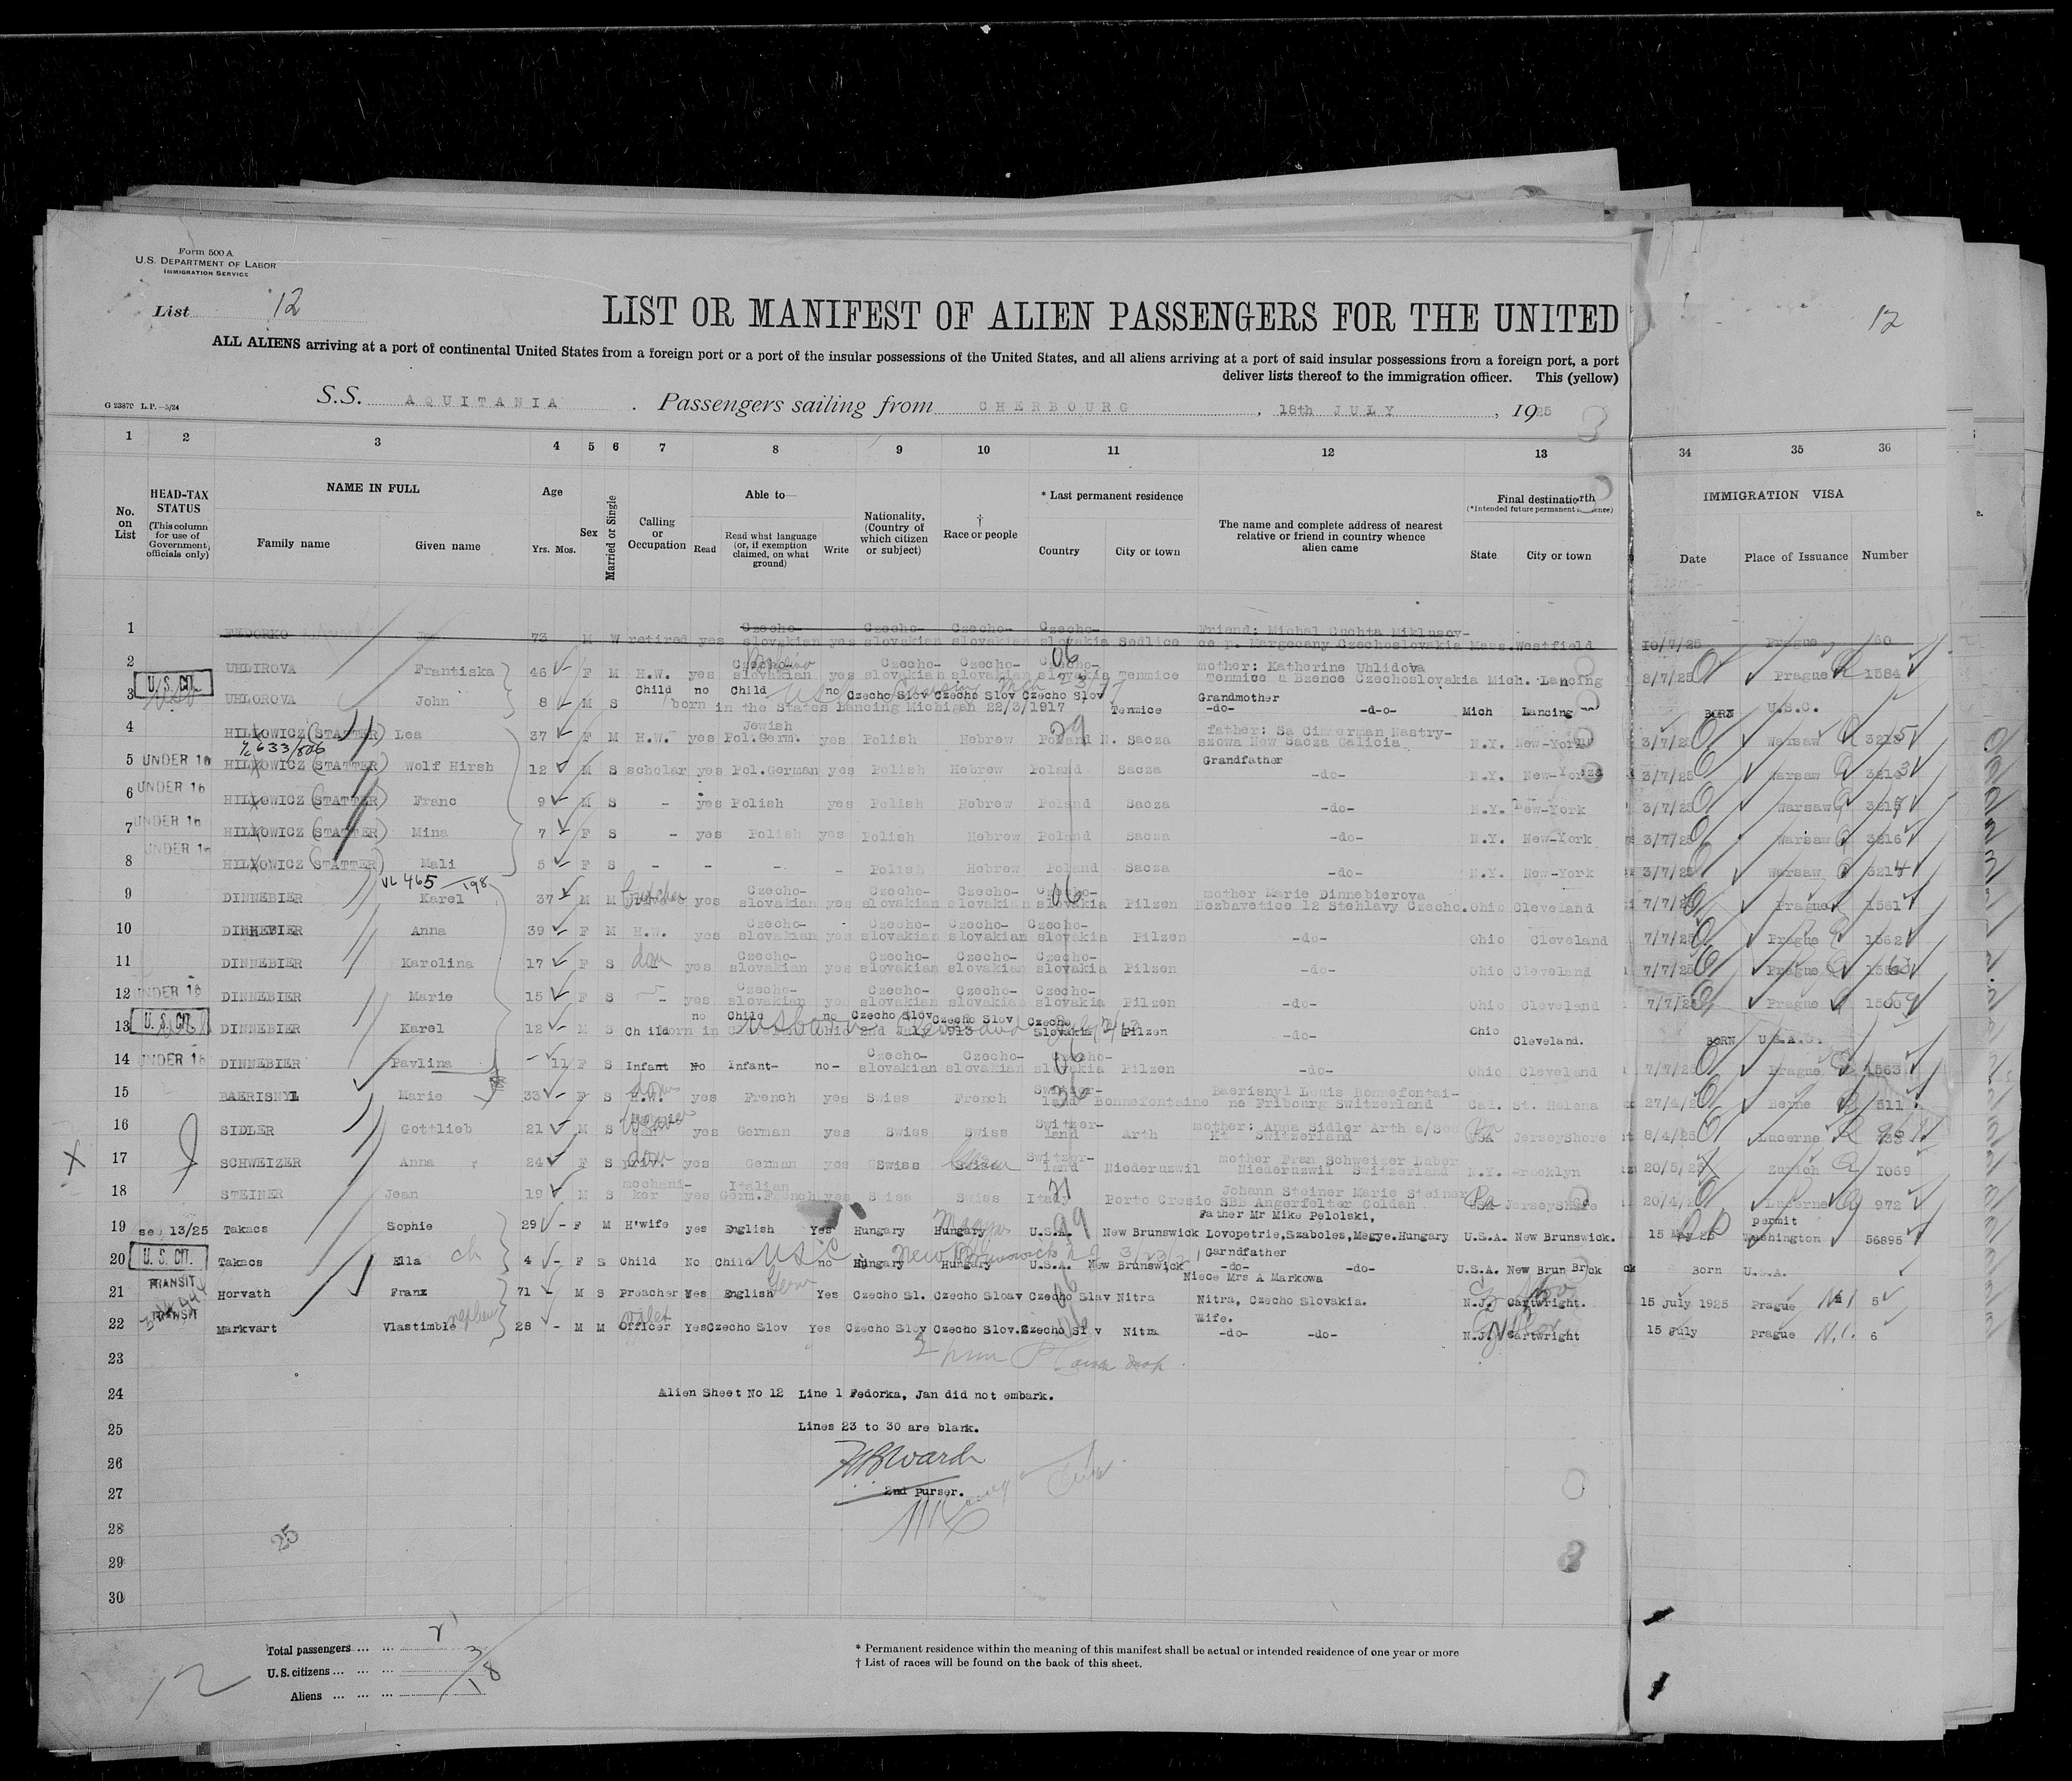 Form 500 A
U.S. DEPARTMENT OF LABOR
IMMIGRATION SERVICE
List 12
12
LIST OR MANIFEST OF ALIEN PASSENGERS FOR THE UNITED
ALL ALIENS arriving at a port of continental United States from a foreign port or a port of the insular possessions of the United States, and all aliens arriving at a port of said insular possessions from a foreign port, a port
deliver lists thereof to the immigration officer. This (yellow)
S.S. AQUITANIA. Passengers sailing from CHERBOURG, 18th JULY, 1925
1 2 3 4 5 6 7 8 9 10 11 12 13 34 35 36
No. on List
HEAD-TAX STATUS (This column for use of Government officials only)
NAME IN FULL
Family name Given name
Age
Yrs. Mos.
Sex
Married or Single
Calling or Occupation
Able to—
Read
Read what language (or, if exemption claimed, on what ground)
Write
Nationality, (Country of which citizen or subject)
† Race or people
* Last permanent residence
Country City or town
The name and complete address of nearest relative or friend in country whence alien came
Final destination
(*Intended future permanent
State City or town
IMMIGRATION VISA
Date Place of Issuance Number
1 FEDORKO 73 M W retired yes Czecho-slovakian yes Czecho-slovakian Czecho-slovakian Czecho-slovakia Sedlice Friend: Michal Suchta Mass. Westfield 10/7/25 Prague 60
2 UHLIROVA Frantiska 46 F M H.W. yes Czecho-slovakian yes Czecho-slovakian Czecho-slovakian Czecho-slovakia Tennice mother: Katherine Uhlidova Tennice u Bzence Czechoslovakia Mich. Lancing 8/7/25 Prague 1584
3 U.S. CIT. UHLOROVA John 8 M S Child no Child no Czecho Slov Czecho Slov Czecho Slov born in the States Lancing Michigan 22/3/1917 Tennice Grandmother -do- -d-o- Mich Lancing BORN U.S.C.
4 HILKOWICZ (STATTER) Lea 37 F M H.W. yes Jewish Pol.Germ. yes Polish Hebrew Poland N. Sacza father: Sa Cimmerman Nastry-szowa New Sacza Galicia N.Y. New-York 3/7/25 Warsaw
5 UNDER 16 HILKOWICZ (STATTER) Wolf Hirsh 12 M S scholar yes Pol.German yes Polish Hebrew Poland Sacza Grandfather -do- N.Y. New-York 3/7/25 Warsaw
6 UNDER 16 HILKOWICZ (STATTER) Franc 9 M S - yes Polish yes Polish Hebrew Poland Sacza -do- N.Y. New-York 3/7/25 Warsaw
7 UNDER 16 HILKOWICZ (STATTER) Mina 7 F S - yes Polish yes Polish Hebrew Poland Sacza -do- N.Y. New-York 3/7/25 Warsaw 3216
8 UNDER 16 HILKOWICZ (STATTER) Mali 5 F S - - - - Polish Hebrew Poland Sacza -do- N.Y. New-York 3/7/25 Warsaw 3214
9 DINNEBIER Karel 37 M M Butcher yes Czecho-slovakian yes Czecho-slovakian Czecho-slovakian Czecho-slovakia Pilzen mother Marie Dinnebierova Nezbavetice 12 Stehlavy Czecho. Ohio Cleveland 7/7/25 Prague 1561
10 DINNEBIER Anna 39 F M H.W. yes Czecho-slovakian yes Czecho-slovakian Czecho-slovakian Czecho-slovakia Pilzen -do- Ohio Cleveland 7/7/25 Prague 1562
11 DINNEBIER Karolina 17 F S dom yes Czecho-slovakian yes Czecho-slovakian Czecho-slovakian Czecho-slovakia Pilzen -do- Ohio Cleveland 7/7/25 Prague
12 UNDER 16 DINNEBIER Marie 15 F S - yes Czecho-slovakian yes Czecho-slovakian Czecho-slovakian Czecho-slovakia Pilzen -do- Ohio Cleveland 7/7/25 Prague
13 U.S. CIT. DINNEBIER Karel 12 M S Child no Child no Czecho Slov Czecho Slov Czecho Slovakia born in Cleveland Ohio 2nd July 1913 Pilzen -do- Ohio Cleveland. BORN U.S.A.
14 UNDER 16 DINNEBIER Pavlina - 11 F S Infant No Infant- no- Czecho-slovakian Czecho-slovakian Czecho-slovakia Pilzen -do- Ohio Cleveland 7/7/25 Prague 1563
15 BAERISNYL Marie 33 F S H.W. yes French yes Swiss French Switzer-land Bonnefontaine Baerisnyl Louis Bonnefontai-ne Fribourg Switzerland Cal. St. Helena 27/4/25 Berne 511
16 SIDLER Gottlieb 21 M S yes German yes Swiss Swiss Switzer-land Arth mother: Anna Sidler Arth Switzerland USA JerseyShore 8/4/25 Lucerne
17 SCHWEIZER Anna 24 F S dom yes German yes Swiss Swiss Switzer-land Niederuzwil mother Fran Schweizer Niederuzwil Switzerland N.Y. Brooklyn 20/5/25 Zurich 1069
18 STEINER Jean 19 M S mechani-ker yes Italian Germ.French yes Swiss Swiss Italy Porto Cresio Johann Steiner Marie Steiner SBB Angerfelter Goldan USA JerseyShore 20/4/25 Lucerne 972
19 Takacs Sophie 29 - F M H'wife yes English Yes Hungary Hungary U.S.A. New Brunswick Father Mr Mike Pelolski, Lovopetrie,Szaboles,Megye.Hungary U.S.A. New Brunswick. 15 May 25 permit Washington 56895
20 U.S. CIT. Takacs Ella 4 - F S Child No Child no Hungary Hungary U.S.A. New Brunswick Garndfather -do- -do- U.S.A. New Brun Brck Born U.S.A.
21 TRANSIT Horvath Franz 71 - M S Preacher Yes English Yes Czecho Sl. Czecho Sloav Czecho Slav Nitra Niece Mrs A Markowa Nitra, Czecho Slovakia. N.J. Cartwright. 15 July 1925 Prague 5
22 TRANSIT Markvart Vlastimble nephew 28 - M M Officer Yes Czecho Slov Yes Czecho Slov Czecho Slov. Czecho Slov Nitra Wife. -do- -do- N.J. Cartwright 15 July Prague 6
23
24 Alien Sheet No 12 Line 1 Fedorka, Jan did not embark.
25 Lines 23 to 30 are blank.
26
27 2nd Purser.
28
29
30
25
Total passengers
U.S. citizens 3
Aliens 18
12
* Permanent residence within the meaning of this manifest shall be actual or intended residence of one year or more
† List of races will be found on the back of this sheet.